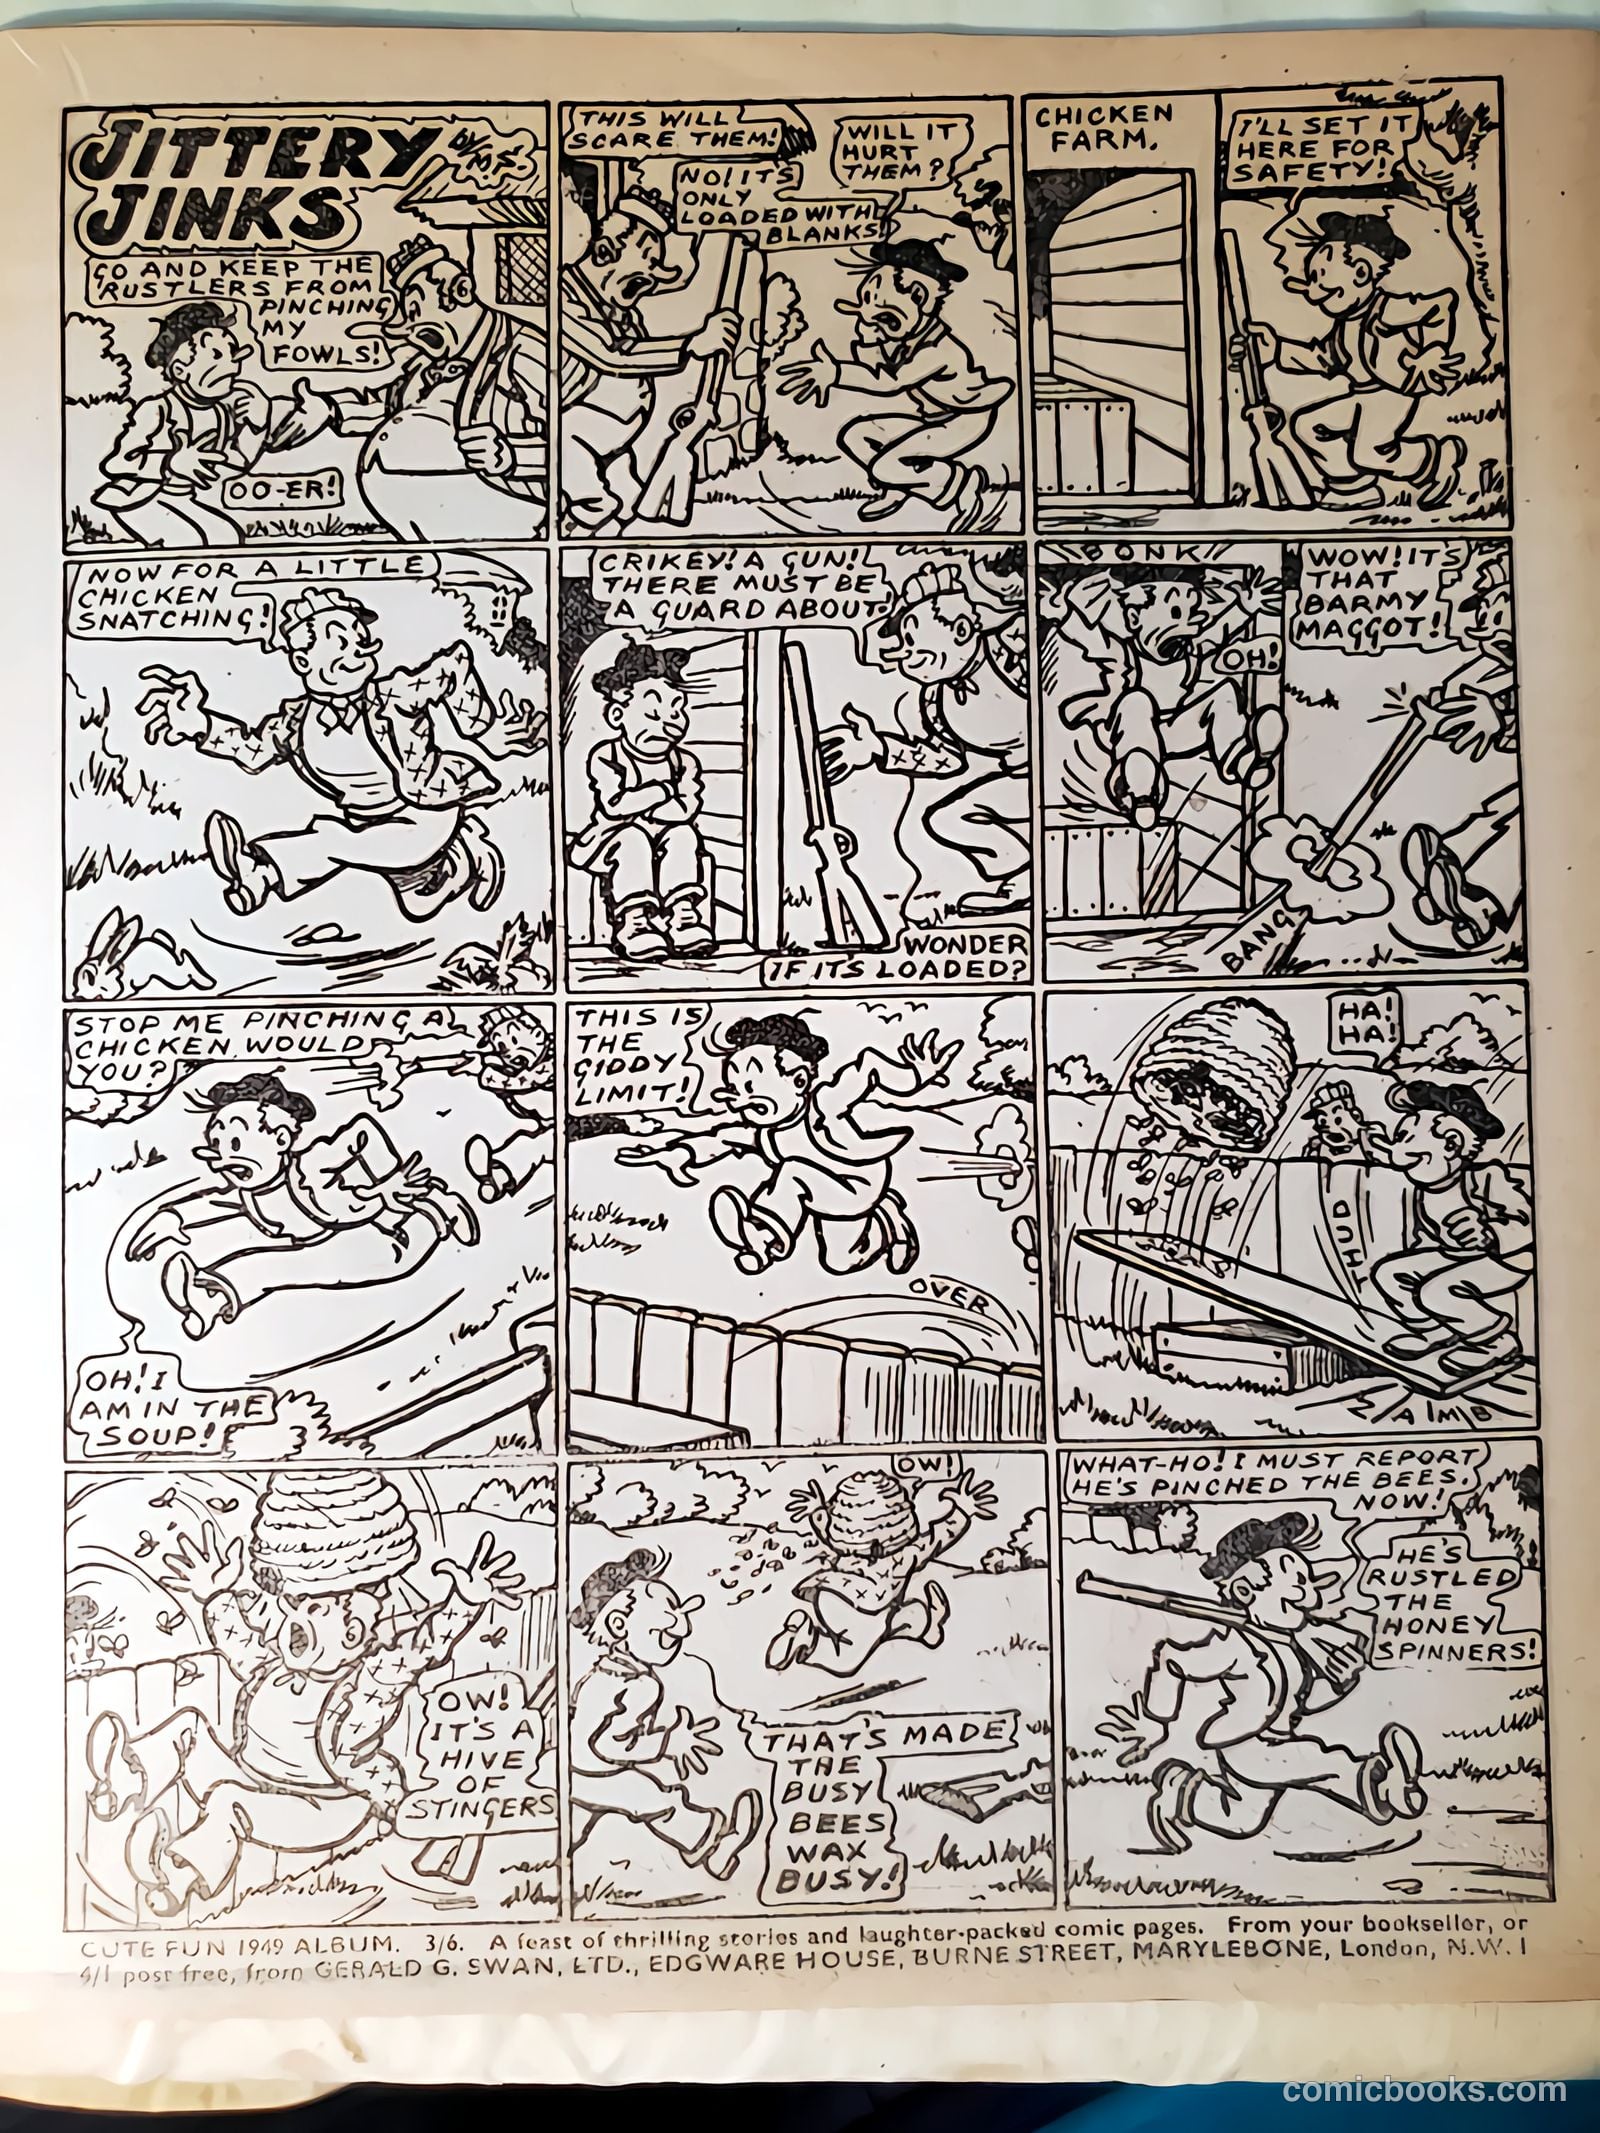 JITTERY
JINKS
BY
M.S.
GO AND KEEP THE
RUSTLERS FROM
PINCHING
MY
FOWLS!
OO-ER!
THIS WILL
SCARE THEM!
WILL IT
HURT
THEM?
NO! IT'S
ONLY
LOADED WITH
BLANKS!
CHICKEN
FARM.
I'LL SET IT
HERE FOR
SAFETY!
NOW FOR A LITTLE
CHICKEN
SNATCHING!
CRIKEY! A GUN!
THERE MUST BE
A GUARD ABOUT!
WONDER
IF IT'S LOADED?
BONK!!
OH!
WOW! IT'S
THAT
BARMY
MAGGOT!
BANG
STOP ME PINCHING A
CHICKEN, WOULD
YOU?
OH! I
AM IN THE
SOUP!
THIS IS
THE
GIDDY
LIMIT!
OVER
HA!
HA!
THUD
OW!
IT'S A
HIVE
OF
STINGERS
OW!
THAT'S MADE
THE
BUSY
BEES
WAX
BUSY!
WHAT-HO! I MUST REPORT
HE'S PINCHED THE BEES.
NOW!
HE'S
RUSTLED
THE
HONEY
SPINNERS!
CUTE FUN 1949 ALBUM. 3/6. A feast of thrilling stories and laughter-packed comic pages. From your bookseller, or
4/1 post free, from GERALD G. SWAN, LTD., EDGWARE HOUSE, BURNE STREET, MARYLEBONE, London, N.W. 1
comicbooks.com